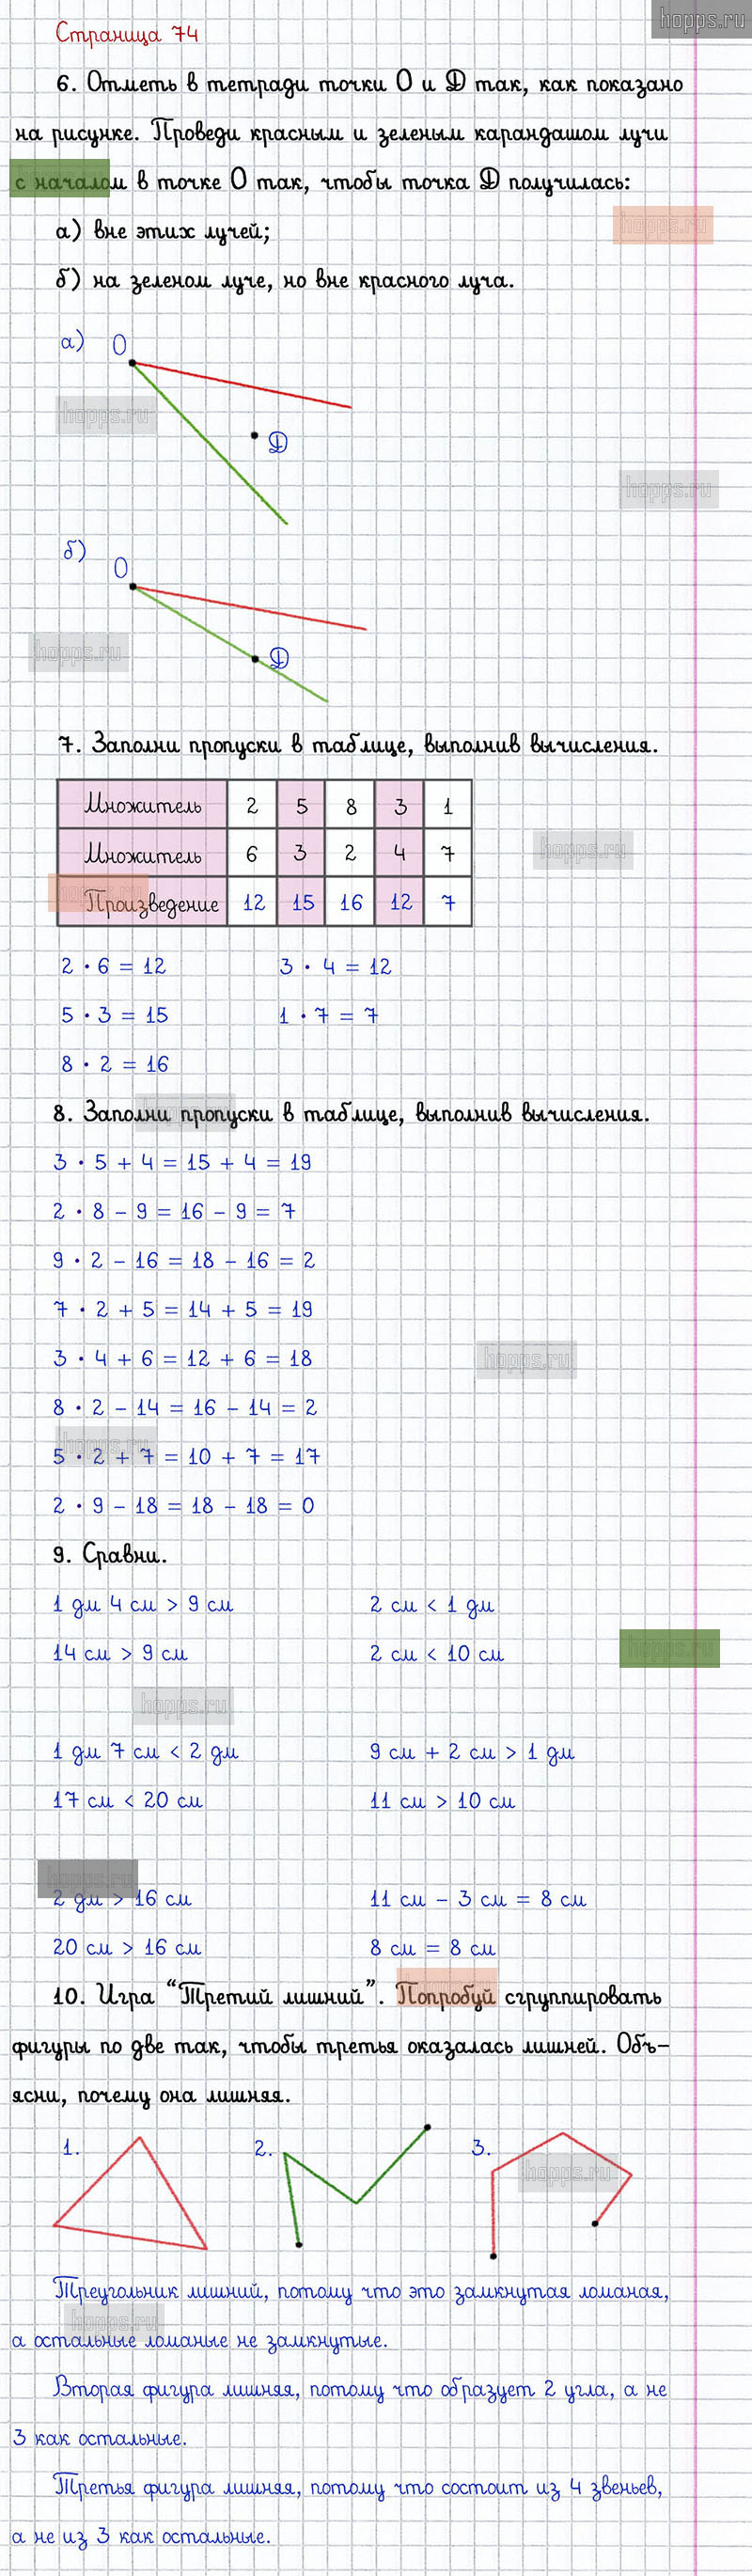 hopps.ru
Страница 74
6. Отметь в тетради точки О и Д так, как показано
на рисунке. Проведи красным и зеленым карандашом лучи
с началом в точке О так, чтобы точка Д получилась:
hopps.ru
а) вне этих лучей;
б) на зеленом луче, но вне красного луча.
а) О
hopps.ru
Д
hopps.ru
б) О
hopps.ru
Д
7. Заполни пропуски в таблице, выполнив вычисления.
Множитель 2 5 8 3 1
Множитель 6 3 2 4 7
hopps.ru
Произведение 12 15 16 12 7
2 · 6 = 12 3 · 4 = 12
5 · 3 = 15 1 · 7 = 7
8 · 2 = 16
8. Заполни пропуски в таблице, выполнив вычисления.
3 · 5 + 4 = 15 + 4 = 19
2 · 8 - 9 = 16 - 9 = 7
9 · 2 - 16 = 18 - 16 = 2
7 · 2 + 5 = 14 + 5 = 19
3 · 4 + 6 = 12 + 6 = 18
hopps.ru
8 · 2 - 14 = 16 - 14 = 2
hopps.ru
5 · 2 + 7 = 10 + 7 = 17
2 · 9 - 18 = 18 - 18 = 0
9. Сравни.
1 дм 4 см > 9 см 2 см < 1 дм
14 см > 9 см 2 см < 10 см
hopps.ru
hopps.ru
1 дм 7 см < 2 дм 9 см + 2 см > 1 дм
17 см < 20 см 11 см > 10 см
hopps.ru
2 дм > 16 см 11 см - 3 см = 8 см
20 см > 16 см 8 см = 8 см
10. Игра “Третий лишний”. Попробуй сгруппировать
фигуры по две так, чтобы третья оказалась лишней. Объ-
ясни, почему она лишняя.
1. 2. 3.
hopps.ru
Треугольник лишний, потому что это замкнутая ломаная,
hopps.ru
а остальные ломаные не замкнутые.
Вторая фигура лишняя, потому что образует 2 угла, а не
3 как остальные.
Третья фигура лишняя, потому что состоит из 4 звеньев,
а не из 3 как остальные.